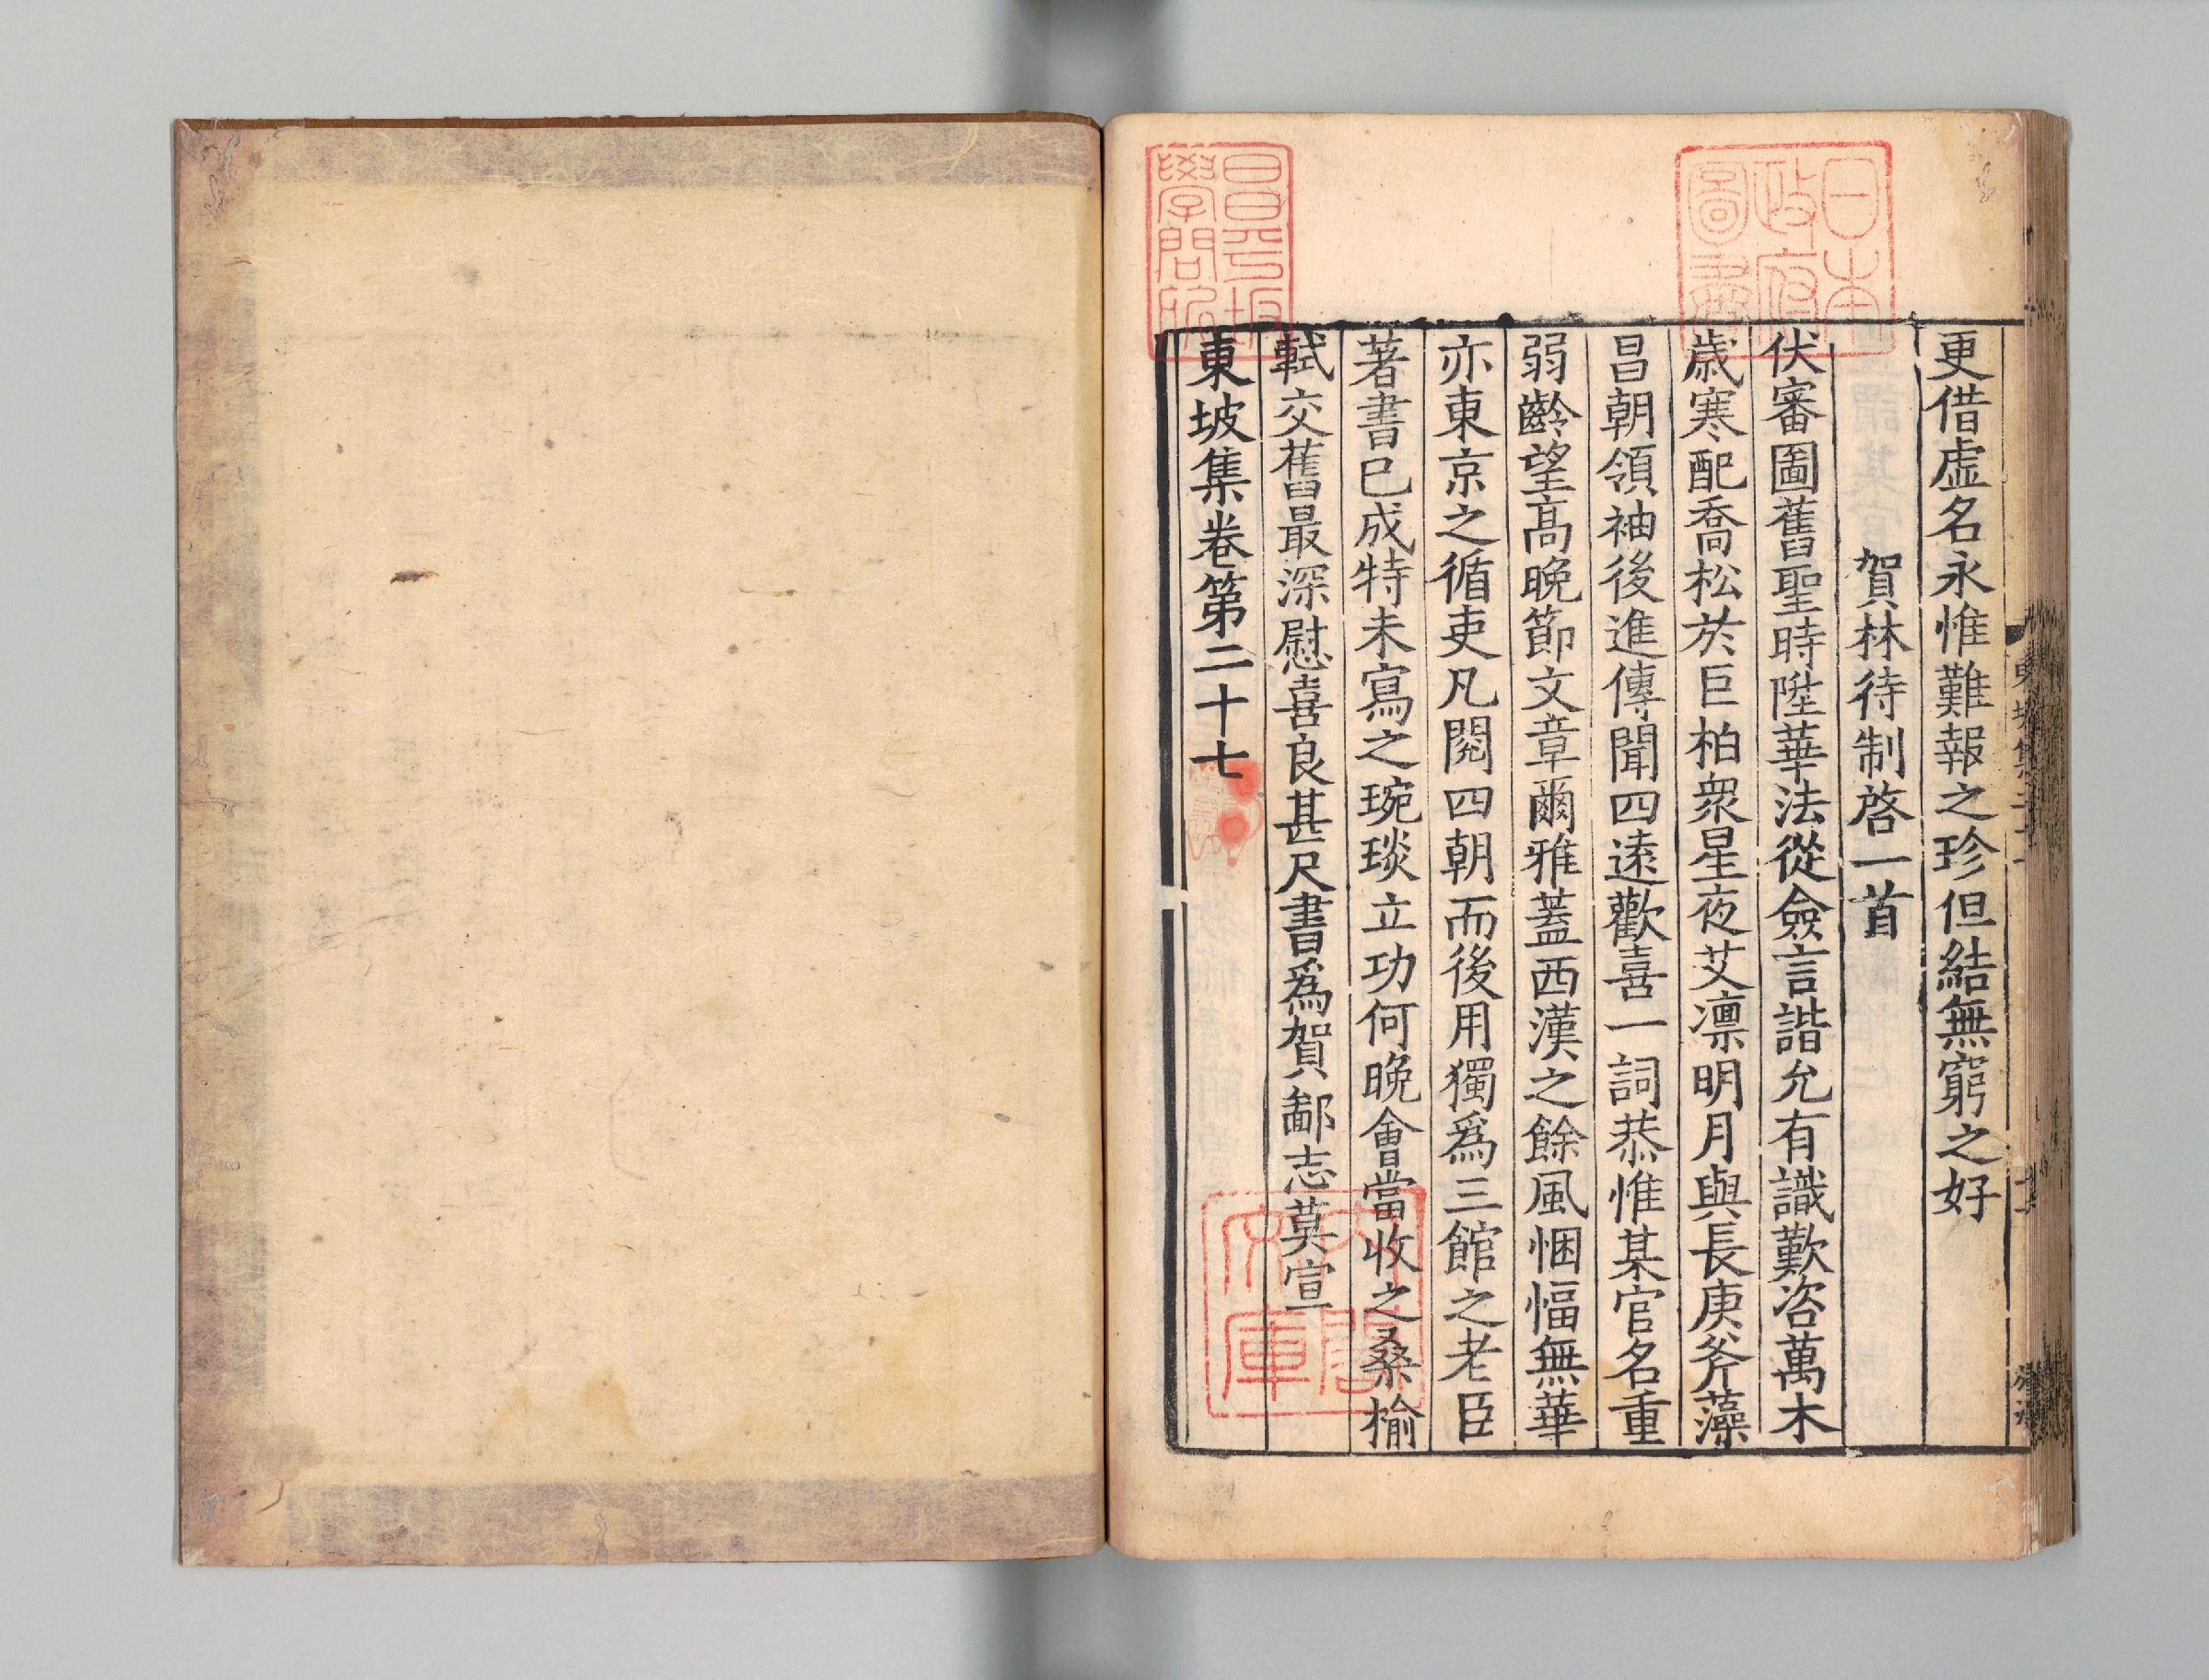 更借虛名永惟難報之珍但結無窮之好
賀林待制啓一首
伏審圖舊聖時陞華法從僉言諧允有識歎咨萬木
歳寒配喬松於巨柏衆星夜艾凛明月與長庚斧藻
昌朝領袖後進傳聞四逺歡喜一詞恭惟某官名重
弱齡望髙晚節文章爾雅蓋西漢之餘風悃愊無華
亦東京之循吏凡閱四朝而後用獨爲三館之老臣
著書已成特未寫之琬琰立功何晚會當收之桑榆
軾交舊最深慰喜良甚尺書爲賀鄙志莫宣
東坡集卷第二十七
日本政府圖書
昌平坂學問所
内閣文庫